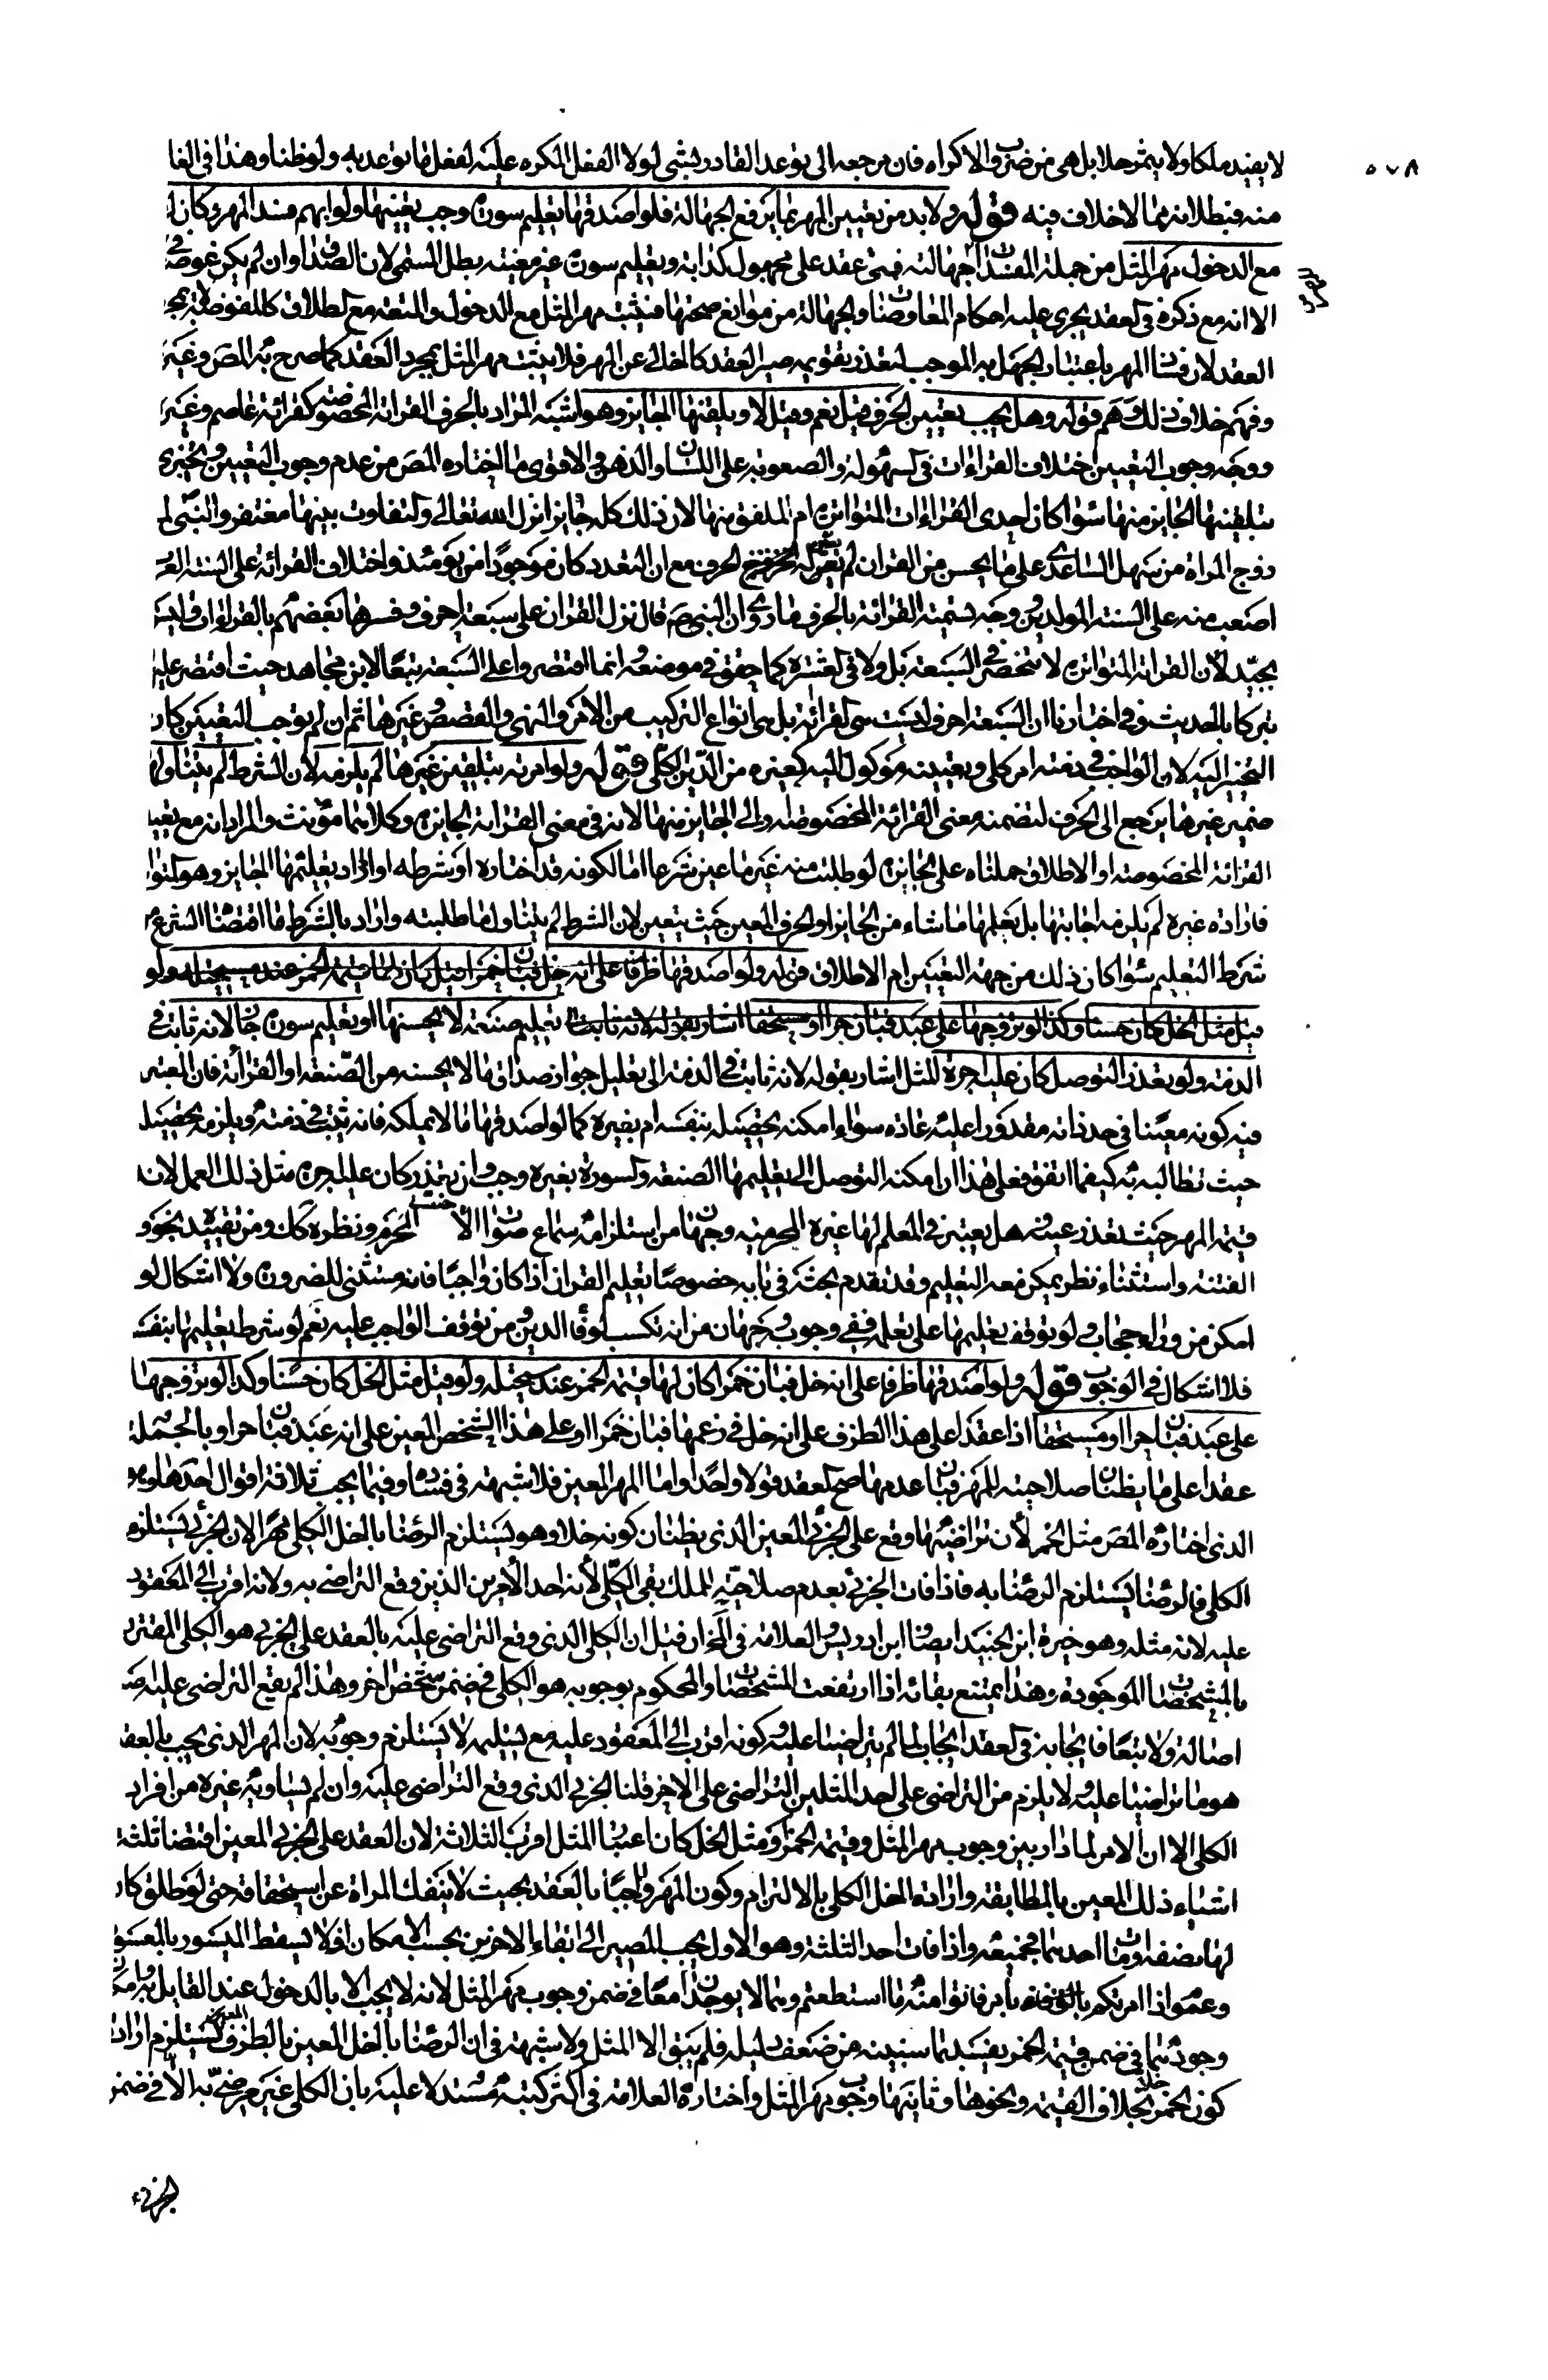 ٥٧٨
لا يفيد ملكا ولا يثمر حلا بل هي من ضرب والاكراه فان مرجعه الى توعد القادر بشي لولا الفعل المكره عليه لفعل ما توعد به ولو ظنا وهذا في الفا
منه فبطلانه مما لا خلاف فيه قوله ولا بد من تعيين المهر بما يرفع الجهالة فلو اصدقها تعليم سورة وجب تعيينها ولو ابهم فسد المهر وكان لها
مع الدخول مهر المثل من جملة المفسدات جهالته فمتى عقد على مجهول كدابة وتعليم سورة غير معينة بطل المسمى لان الصداق وان لم يكن عوضه في
الا انه مع ذكره في العقد يجري عليه احكام المعاوضات والجهالة من موانع صحتها فيثبت مهر المثل مع الدخول والمتعة مع الطلاق كالمفوضة
العقد لان فساد المهر باعتبار الجهل به الموجب لتعذر تقويمه صير العقد كالخالي عن المهر فلا يثبت مهر المثل بمجرد العقد كما صرح به المص وغيره
وفهم خلاف ذلك وهم قوله وهل يجب تعيين الحرف قيل نعم وقيل لا ويلقنها الجايز وهو اشبه المراد بالحرف القرائة المخصوصة كقرائة عاصم وغيره
ووجه وجوب التعيين اختلاف القراءات في السهولة والصعوبة على اللسان والذهن والاقوى ما اختاره المص من عدم وجوب التعيين ويجتزي
بتلقينها الجايز منها سواء كان احدى القراءات المتواترة ام الملفق منها لان ذلك كله جايز انزل الله تعالى والتفاوت بينها مغتفر والنبي لم
زوج المراة من سهل الساعدي على ما يحسن من القران لم يعين له الحرف مع ان التعدد كان موجودا من يومئذ واختلاف القرائة على السنة العرب
اصعب منه على السنة المولدين ووجه تسمية القرائة بالحرف ما روي ان النبي ص قال نزل القران على سبعة احرف وفسرها بعضهم بالقراءات وليس
بجيد لان القرائة المتواترة لا تنحصر في السبعة بل ولا في العشرة كما حقق في موضعه وانما اقتصروا على السبعة تبعا لابن مجاهد حيث اقتصر عليها
تبركا بالحديث وفي اخبارنا ان السبعة احرف ليست هي القرائة بل هي انواع التركيب من الامر والنهي والقصص وغيرها ثم ان لم يوجب التعيين كان
التخيير اليه لان الواجب في ذمته امر كلي وتعيينه موكول اليه كغيره من الدين الكلي قوله ولو امرته بتلقين غيرها لم يلزمه لان الشرط لم يتناولها
ضمير غيرها يرجع الى الحرف لتضمنه معنى القرائة المخصوصة او الى الجايز منها لانه في معنى القرائة الجايزة وكلاهما مؤنث والمراد انه مع تعيين
القرائة المخصوصة او الاطلاق حملناه على الجايزة لو طلبت منه غير ما عين شرعا اما لكونه قد اختاره او شرطه او اراد تعليمها الجايز وهو المتواتر
فارادة غيره لم يلزمه اجابتها بل يعلمها ما شاء من الجايز او الحرف المعين حيث يتعين لان الشرط لم يتناول ما طلبته واراد بالشرط ما اقتضاه الشرع من
شرط التعليم سواء كان ذلك من جهة التعيين ام الاطلاق قوله ولو اصدقها ظرفا على انه خل فبان خمرا قيل كان لها قيمة الخمر عند مستحله ولو
قيل مثل الخل كان حسنا وكذا لو تزوجها على عبد فبان حرا او مستحقا اشار بقوله لانه ثابت تعليم صنعة لا يحسنها او تعليم سورة جاز لانه ثابت في
الذمة ولو تعذر التوصل كان عليه اجرة المثل اشار بقوله لانه ثابت في الذمة الى تعليل جواز صداق ما لا يحسنه من الصنعة او القرائة فان المعتبر
فيه كونه معينا في حد ذاته مقدورا عليه عادة سواء امكنه تحصيله بنفسه ام بغيره كما لو اصدقها ما لا يملكه فانه يثبت في ذمته ويلزمه تحصيله
حيث تطالبه به كيفما اتفق فعلى هذا ان امكنه التوصل الى تعليمها الصنعة والسورة بغيره وجب وان تعذر كان عليه اجرة مثل ذلك العمل لانه
قيمة المهر حيث تعذر عينه وهل يعتبر في المعلم لها غيره المحرمية وجهان من استلزامه سماع صوت الاجنبية المحرم ونظره كك ومن تقييده بخوف
الفتنة واستثناء نظر يمكن معه التعليم وقد تقدم بحثه في بابه خصوصا تعليم القران اذا كان واجبا فانه مستثنى للضرورة ولا اشكال لو
امكن من وراء حجاب ولو توقف تعليمها على تعلمه ففي وجوب وجهان من انه تكسب لوفاء الدين ومن توقف الواجب عليه نعم لو شرط تعليمها بنفسه
فلا اشكال في الوجوب قوله ولو اصدقها ظرفا على انه خل فبان خمرا كان لها قيمة الخمر عند مستحله ولو قيل مثل الخل كان حسنا وكذا لو تزوجها
على عبد فبان حرا او مستحقا اذا عقدا على هذا الظرف على انه خل في زعمها فبان خمرا او على هذا الشخص المعين على انه عبد فبان حرا وبالجملة
عقدا على ما يظنان صلاحيته للمهر فبان عدمها صح العقد قولا واحدا واما المهر المعين فلا شبهة في فساده وفيما يجب ثلاثة اقوال احدها وهو
الذي اختاره المص مثل الخمر لان تراضيهما وقع على الجزئي المعين الذي يظنان كونه خلا وهو يستلزم الرضا بالخل الكلي مهرا لان الجزئي يستلزم
الكلي فالرضا يستلزم الرضا به فاذا فات الجزئي بعدم صلاحيته للملك بقي الكلي لانه احد الامرين الذين وقع التراضي به ولانه اقرب الى المعقود
عليه لانه مثله وهو خيرة ابن الجنيد ايضا وابن ادريس والعلامة في المخ فان قيل ان الكلي الذي وقع التراضي عليه بالعقد على الجزئي هو الكلي المقترن
بالمشخصات الموجودة وهذا يمتنع بقائه اذا ارتفعت المشخصات والمحكوم بوجوبه هو الكلي في ضمن شخص اخر وهذا لم يقع التراضي عليه
اصالة ولا تبعا فايجابه في العقد ايجاب لما لم يتراضيا عليه وكونه اقرب الى المعقود عليه مع تسليمه لا يستلزم وجوبه لان المهر الذي يجب بالعقد
هو ما تراضيا عليه ولا يلزم من التراضي على احد المثلين التراضي على الاخر قلنا الجزئي الذي وقع التراضي عليه وان لم يساويه غيره من افراد
الكلي الا ان الامر لما دار بين وجوب مهر المثل وقيمة الخمر ومثل الخل كان اعتبار المثل اقرب الثلاثة لان العقد على الجزئي المعين اقتضا ثلثة
اشياء ذلك المعين بالمطابقة وارادة الخل الكلي بالالتزام وكون المهر واجبا بالعقد بحيث لا ينفك المراة عن استحقاقه حتى لو طلق كان
لها نصفه او مات احدهما فجميعه واذا فات احد الثلثة وهو الاول يجب المصير الى ابقاء الاخرين بحسب الامكان اذ لا يسقط الميسور بالمعسور
وعموا اذا امرتكم بامر فاتوا منه ما استطعتم وهما لا يوجدان معا في ضمن وجوب مهر المثل لانه لا يجب الا بالدخول عند القايل به
وجودهما في ضمن قيمة الخمر يفسد بما سنبينه من ضعف دليله فلم يبق الا المثل ولا شبهة في ان الرضا بالخل المعين بالظرف يستلزم ارادة
كون الخمر خلا بخلاف القيمة ونحوها وثانيها وجوب مهر المثل واختاره العلامة في اكثر كتبه مستدلا عليه بان الكلي غير مرضي به الا في ضمن
الجزئي